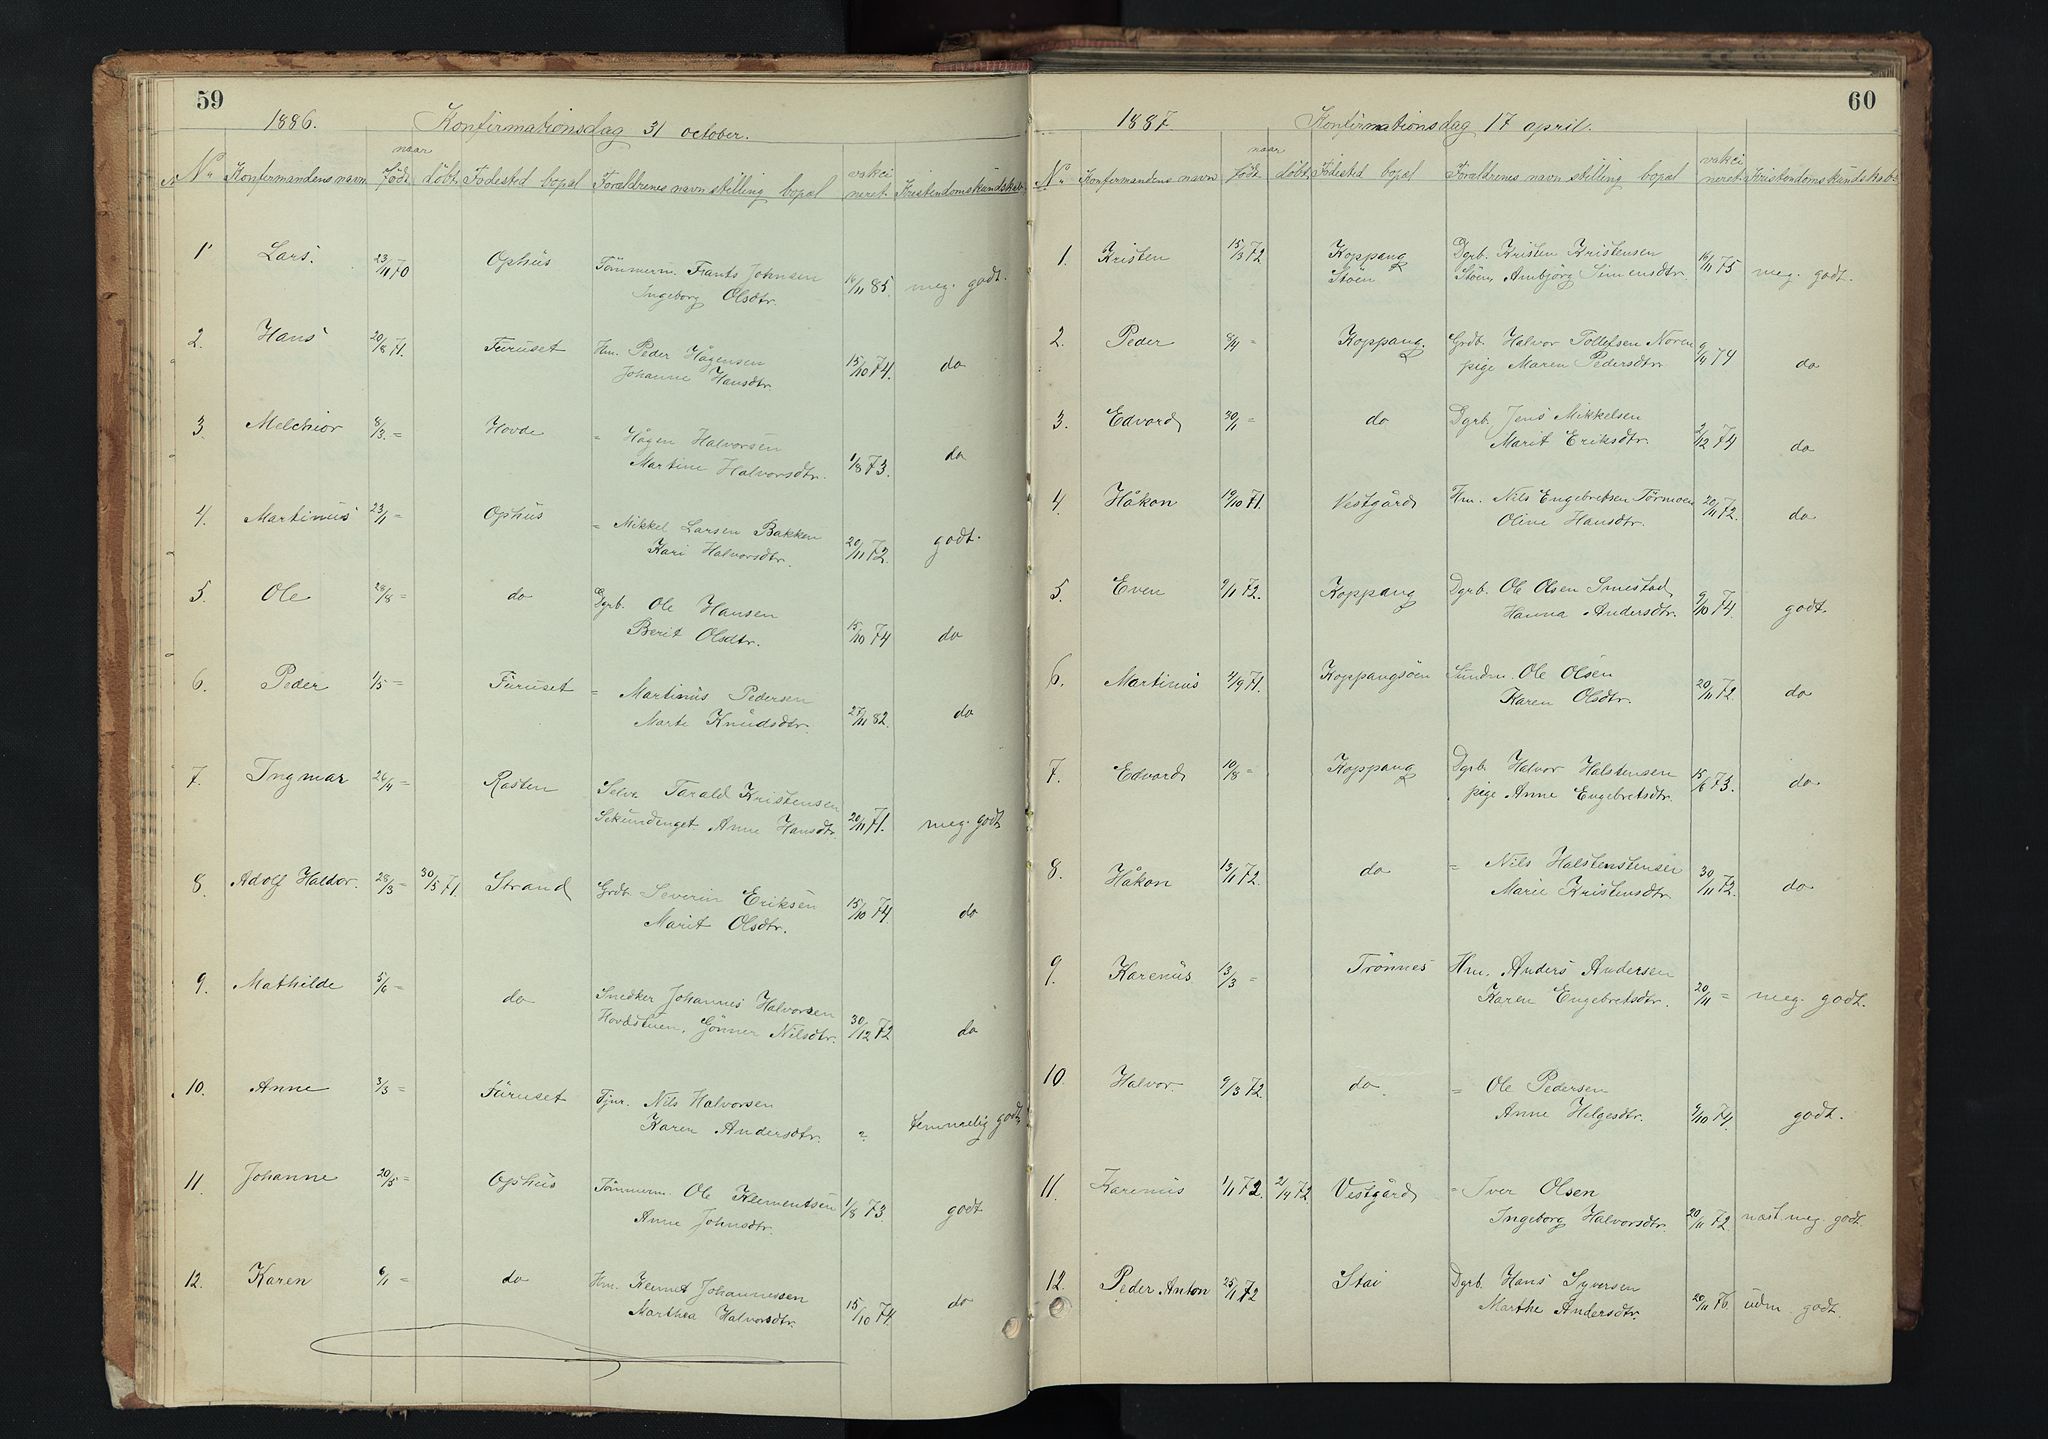 59
1886. Konfirmationsdag 31 october.
naar
No Konfirmandens navn født døbt Fødested bopæl Forældrenes navn stilling bopæl vakcineret. Kristendomskundskab.
1 Lars. 23/11 70 Ophus Tømmerm. Frants Johnsen 16/11 85 meg. godt.
Ingeborg Olsdtr.
2. Hans 20/8 71. Furuset Hm. Peder Hågensen 15/10 74. do
Johanne Hansdtr.
3. Melchior 8/3. = Hovde = Hågen Halvorsen
Martine Halvorsdtr. 1/8 73. do
4. Martinus 23/1 = Ophus = Mikkel Larsen Bakken
Kari Halvorsdtr. 20/11 72. godt.
5. Ole 28/8 = do Dgrb. Ole Hansen
Berit Olsdtr. 15/10 74 do
6. Peder 1/5 = Furuset = Martinus Pedersen
Marte Knudsdtr. 27/11 82. do
7. Ingmar 26/4 = Rasten Selve. Tarald Kristensen
Sekundenget Anne Hansdtr. 20/11 71. meg. godt
8. Adolf Haldor. 28/3 = 30/5 71. Strand Grdb. Severin Eriksen
Marit Olsdtr. 15/10 74. do
9. Mathilde 5/6 = do Snedker Johannes Halvorsen
Hovdstuen, Gönner Nilsdtr. 30/12 72 do
10. Anne 3/3 = Furuset Tjnr. Nils Halvorsen
Karen Andersdtr. ? temmelig godt
11. Johanne 20/5 = Ophus Tømmerm. Ole Klementsen 1/8 73 godt
Anne Johnsdtr.
12. Karen 6/1 = do Hm. Klemet Johannessen
Marthea Halvorsdtr. 15/10 74. do
60
1887. Konfirmationsdag 17 april.
naar
No Konfirmandens navn født døbt Fødested bopæl Forældrenes navn stilling bopæl vakcineret. Kristendomskundskab.
1. Kristen 15/3 72 Koppang Dgrb. Kristen Kristensen 16/11 75 meg. godt.
Støen Støen, Ambjørg Simensdtr.
2. Peder 8/4 = Koppang. Grdb. Halvor Tollefsen Noren 9/4 74 do
pige Maren Pedersdtr.
3. Edvard 30/1 = do Dgrb. Jens Mikkelsen
Marit Eriksdtr. 2/12 74 do
4. Håkon 19/10 71. Vestgård Hm. Nils Engebretsen Tørmoen 20/11 72. do
Oline Hansdtr.
5. Even 9/1 72. Koppang Dgrb. Ole Olsen Smestad 9/10 74. godt.
Hanna Andersdtr.
6. Martinus 2/9 71. Koppangsøen Sundm. Ole Olsen
Karen Olsdtr. 20/11 72 do
7. Edvard 10/8 = Koppang Dgrb. Halvor Halstensen 15/6 73. do
pige Anne Engebretsdtr.
8. Håkon 13/11 72. do = Nils Halstenstensen
Marie Kristensdtr. 30/11 72. do
9. Karenus 13/3 = Trønnes Hm. Anders Andersen
Karen Engebretsdtr. 20/11 = meg. godt.
10. Halvor. 9/3 72 do = Ole Pedersen
Anne Helgesdtr. 9/10 74. godt.
11. Karenus 1/1 72. 21/4 72 Vestgård = Iver Olsen
Ingeborg Halvorsdtr. 20/11 72. næst. meg. godt.
12. Peder Anton 25/1 72 Stai Dgrb. Hans Syversen
Marthe Andersdtr. 20/11 76. udm. godt.